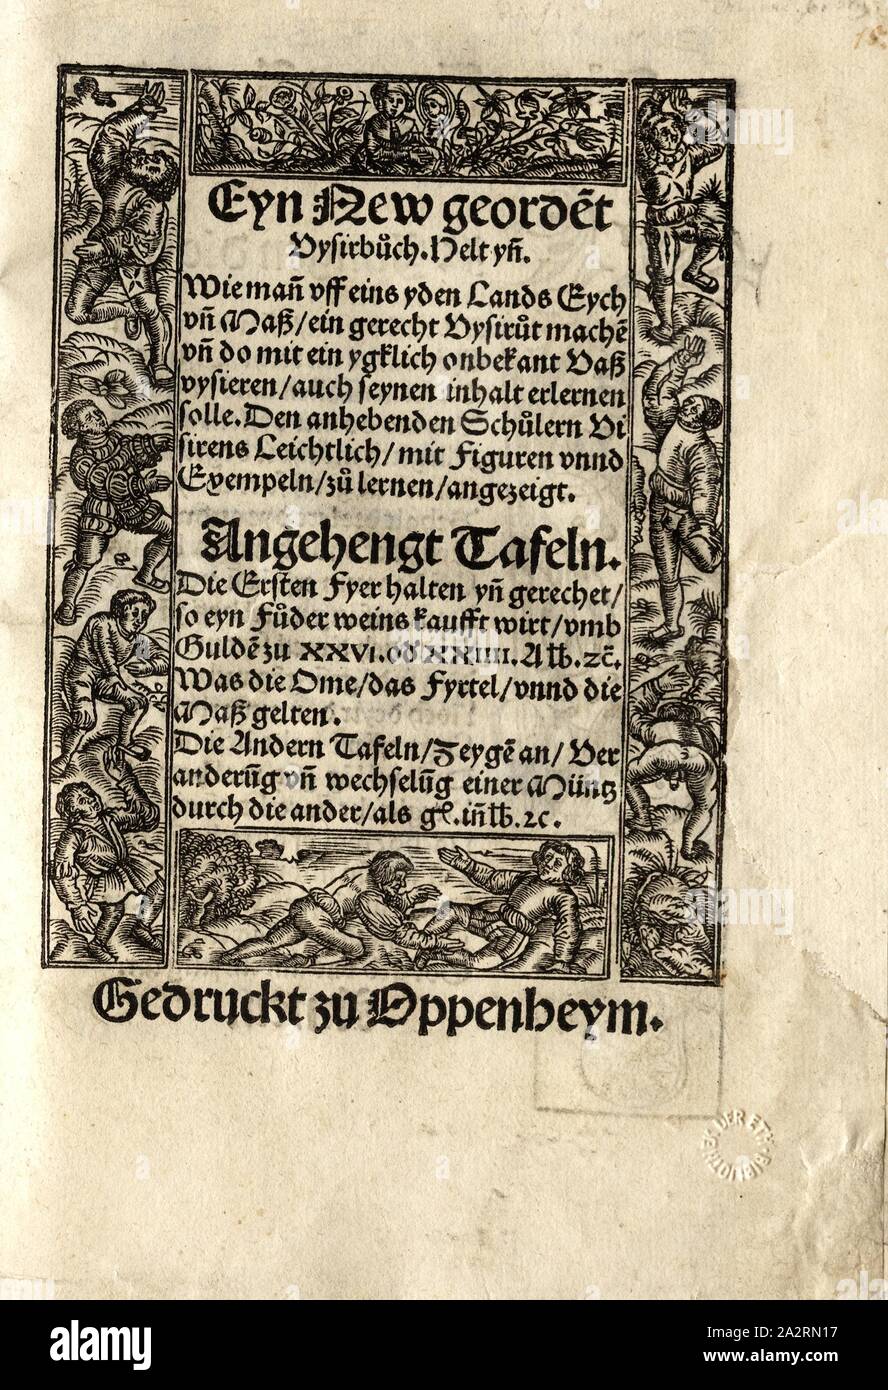 Eyn New geordēt
Vysirbůch. Helt yn̄.
Wie man̄ vff eins yden Lands Eych
vn̄ Maß/ein gerecht Vysirůt machē
vn̄ do mit ein ygklich onbekant Vaß
vysieren/auch seynen inhalt erlernen
solle. Den anhebenden Schůlern Vi
sirens Leichtlich/mit Figuren vnnd
Exempeln/zů lernen/angezeigt.
Angehengt Tafeln.
Die Ersten Fyer halten yn̄ gerechet/
so eyn Fůder weins kaufft wirt/vmb
Guldē zu XXVI. od XXIIII. Alb. ꝛc̄.
Was die Ome/das Fyrtel/vnnd die
Maß gelten.
Die Andern Tafeln/Zeygē an/Ver
anderūg vn̄ wechselūg einer Müntz
durch die ander/als gl. in̄ lb. ꝛc.
Gedruckt zu Oppenheym.
BIBLIOTHEK DER ETH
alamy
alamy
Image ID: 2A2RN17
www.alamy.com